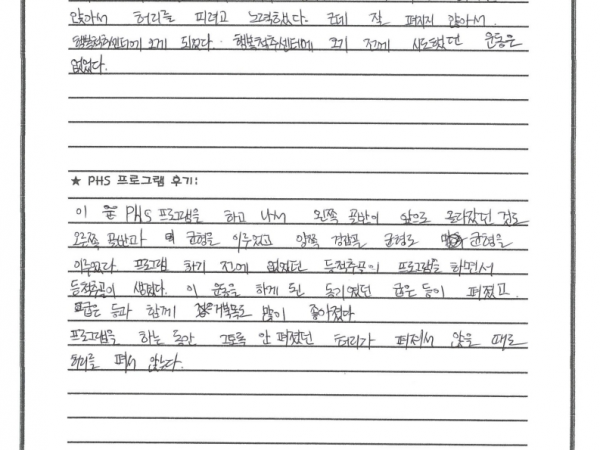 앉아서 허리를 피려고 노력했다. 근데 잘 펴지지 않아서
행복척추센터에 오게 되었다. 행복척추센터에 오기 전에 시도했던 운동은
없었다.
★ PHS 프로그램 후기:
이 PHS 프로그램을 하고 나서 왼쪽 골반이 앞으로 올라갔던 것도
오른쪽 골반과 균형을 이루었고 양쪽 견갑골 균형도 균형을
이루었다. 프로그램 하기 전에 없었던 등척추골이 프로그램을 하면서
등척추골이 생겼다. 이 운동을 하게 된 동기였던 굽은 등이 펴졌고
굽은 등과 함께 거북목도 많이 좋아졌다
프로그램을 하는 동안 그토록 안 펴졌던 허리가 펴져서 앉을 때도
허리를 펴서 앉는다.